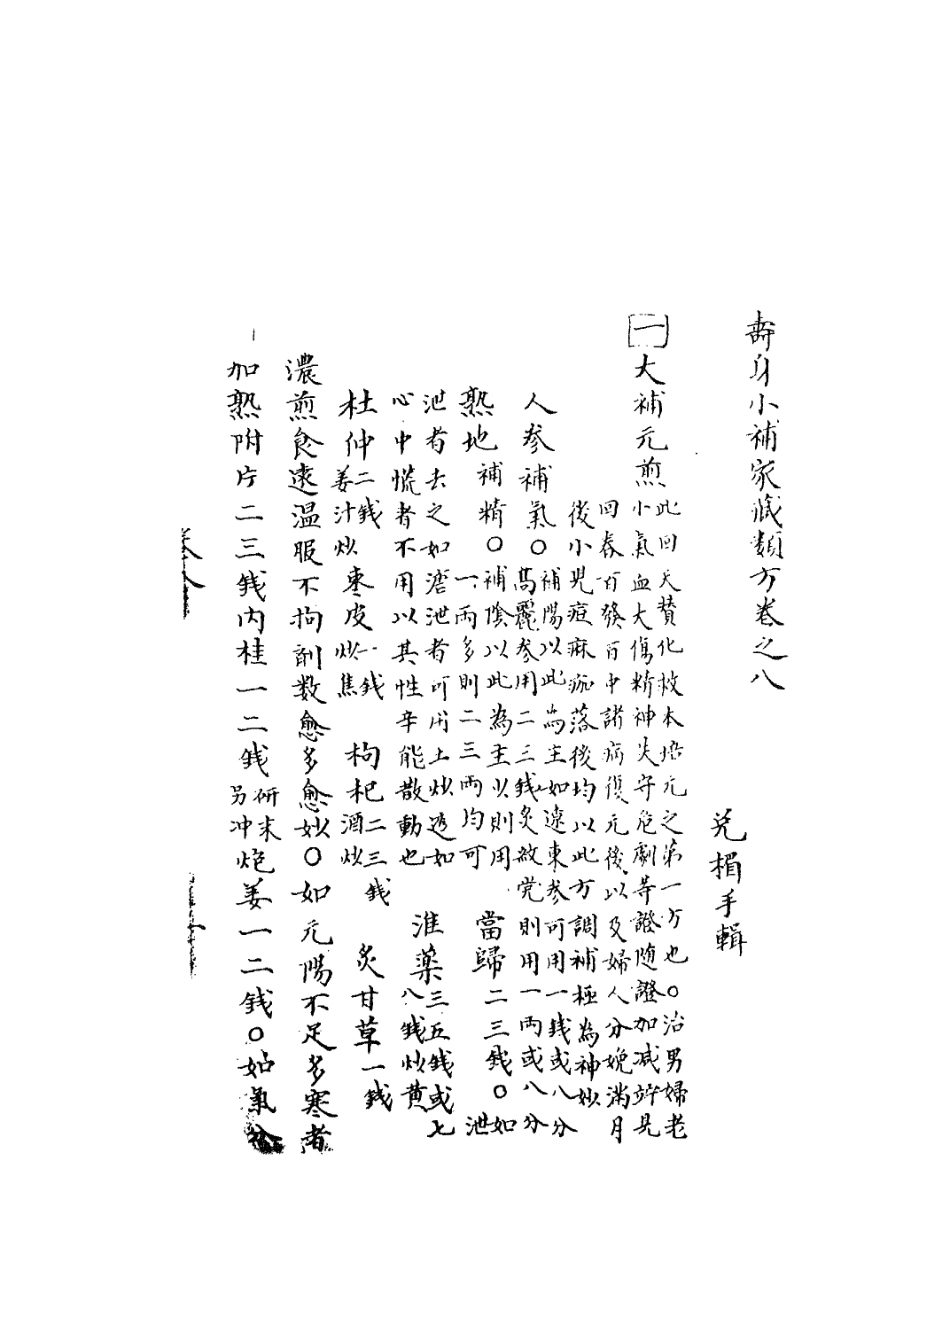 壽身小補家藏類方卷之八
兊楣手輯
一大補元煎
此回天贊化救本培元之第一方也○治男婦老
小氣血大傷精神失守危劇等證隨證加減竚見
回春百發百中諸病復元後以及婦人分娩滿月
後小兒痘麻疵落後均以此方調補極為神妙
人參補氣○補陽以此為主如遼東参可用一錢或八分
高麗参用二三錢炙黨則用一両或八分
熟地補精○補陰以此為主少則用
一両多則二三両均可
當歸二三錢○如泄
泄者去之如溏泄者可用土炒透如
心中慌者不用以其性辛能散動也
淮藥三五錢或七
八錢炒黄
杜仲二錢
姜汁炒
棗皮一錢
炒焦
枸杞二三錢
酒炒
炙甘草一錢
濃煎食遠温服不拘劑数愈多愈妙○如元陽不足多寒者
加熟附片二三錢内桂一二錢研末
另冲
炮姜一二錢○如氣